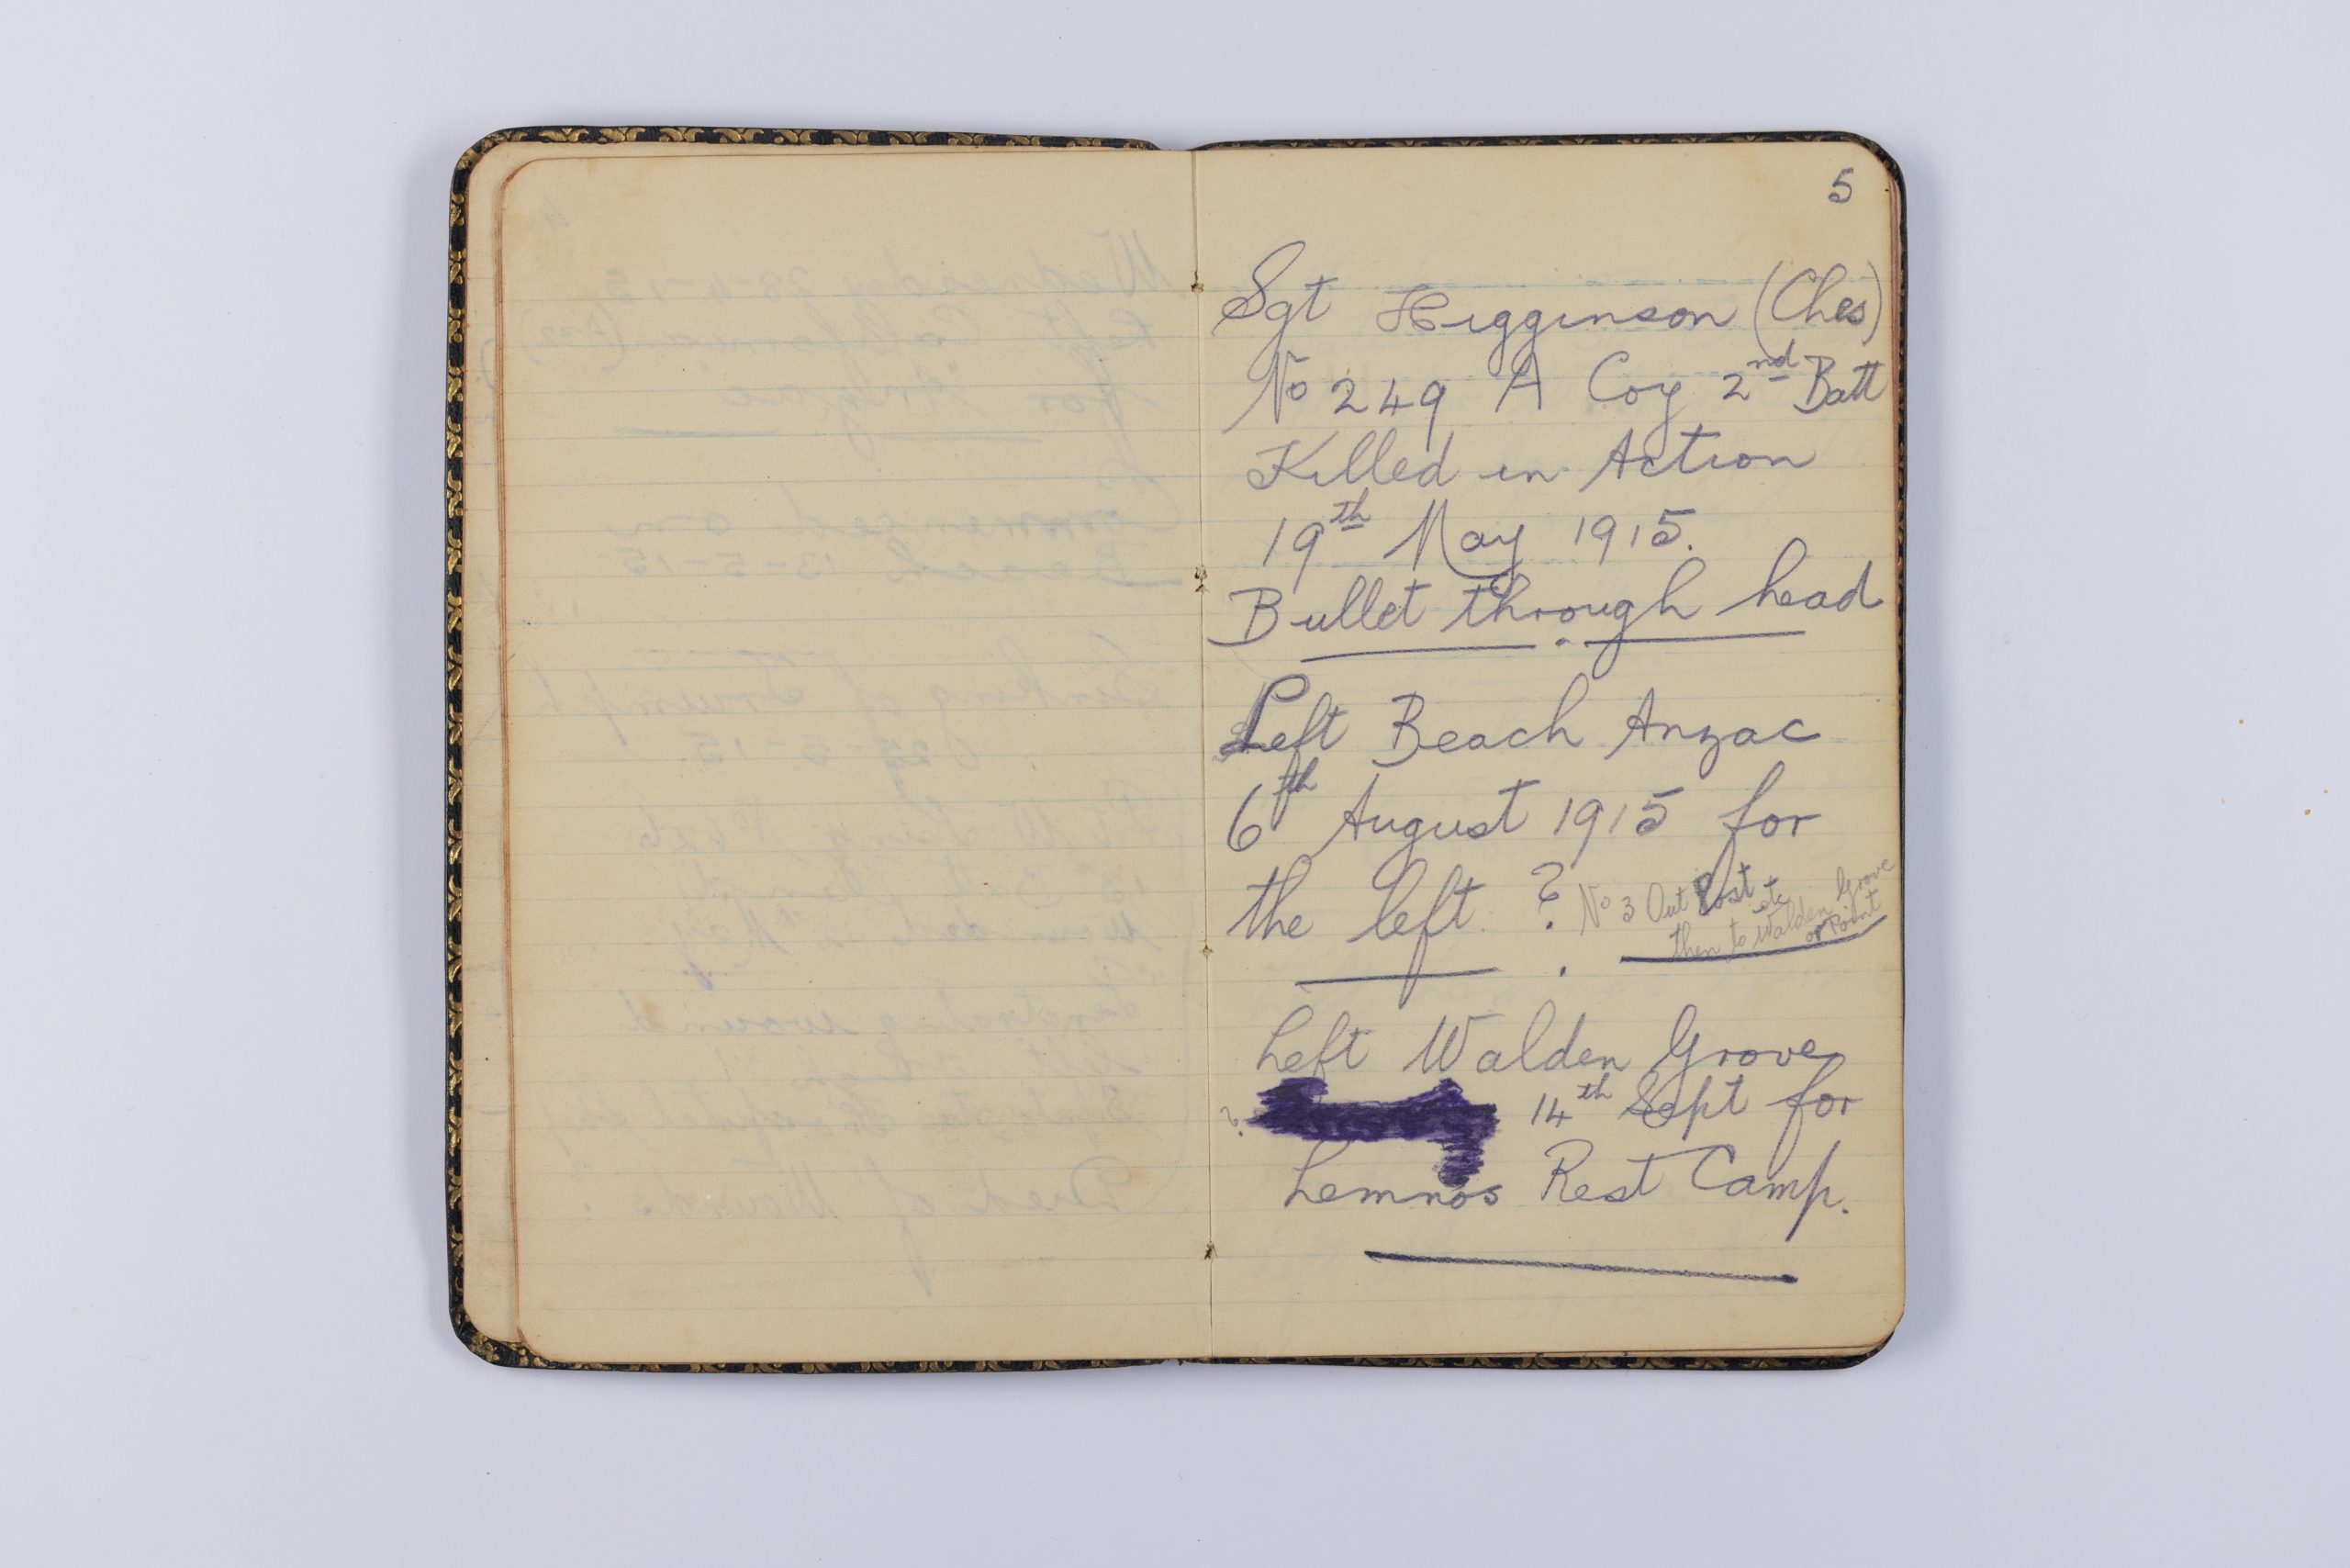 5
Sgt Higginson (Ches)
No 249 A Coy 2nd Batt
Killed in Action
19th May 1915.
Bullet through head
Left Beach Anzac
6th August 1915 for
the left ? No 3 Out Post etc
then to Walden Grove
or Point
Left Walden Grove
? 14th Sept for
Lemnos Rest Camp.